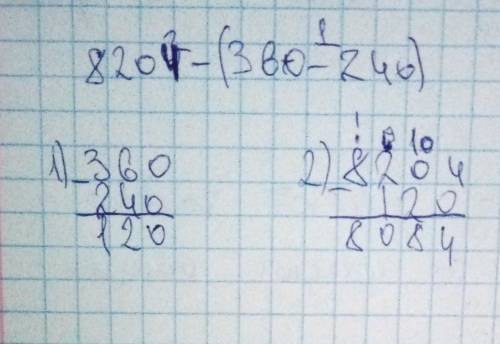 2 1
8204-(360-240)
1) -360
240
120
2) -8204
120
8084